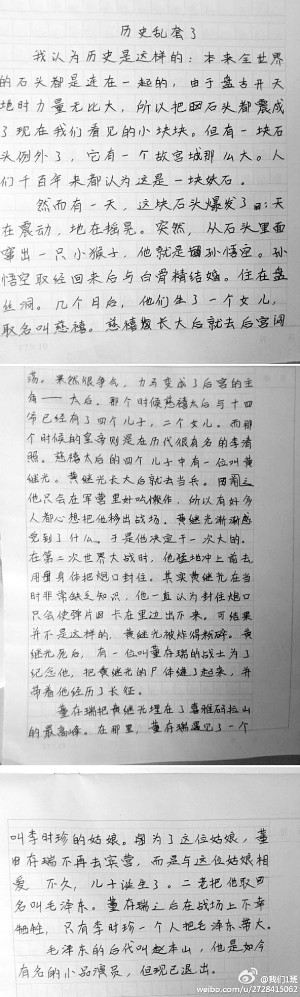 历史乱套了
我认为历史是这样的：本来全世界
的石头都是连在一起的，由于盘古开天
地时力量无比大，所以把石头都震成
了现在我们看见的小块块。但有一块石
头例外了，它有一个故宫城那么大。人
们千百年来都认为这是一块妖石。
然而有一天，这块石头爆发了：天
在震动，地在摇晃。突然，从石头里面
窜出一只小猴子，他就是孙悟空。孙
悟空取经回来后与白骨精结婚。住在盘
丝洞。几个月后，他们生了一个女儿，
取名叫慈禧。慈禧长大后就去后宫闯
荡。果然很争气，力马变成了后宫的主
有——太后。那个时候慈禧太后与十四
爷已经有了四个儿子，二个女儿。而那
个时候的皇帝则是在历代很有名的李清
照。慈禧太后的四个儿子中有一位叫黄
继光。黄继光长大后就去当兵。因
他只会在军营里好吃懒作，所以有好多
人都心想把他移出战场。黄继光渐渐感
觉到了什么。于是他决定干一次大的。
在第二次世界大战时，他猛地冲上前去，
用身体把炮口封住。其实黄继光在当
时非常缺乏知识，他一直认为封住炮口
只会使弹片卡在里边出不来。可结果
并不是这样的，黄继光被炸得粉碎。黄
继光死后，有一位叫董存瑞的战士为了
纪念他，把黄继光的尸体缝了起来，并
带着他经历了长征。
董存瑞把黄继光埋在了喜雅码拉山
的最高峰。在那里，董存瑞遇见了一个
叫李时珍的姑娘。因为了这位姑娘，董
存瑞不再去实营，而是与这位姑娘相
爱 不久，儿子诞生了。二老把他取
名叫毛泽东。董存瑞之后在战场上不幸
牺牲，只有李时珍一个人把毛泽东带大。
毛泽东的后代叫赵本山，他是如今
有名的小品演员，但现已退出。
@我们1班
weibo.com/u/2728415062